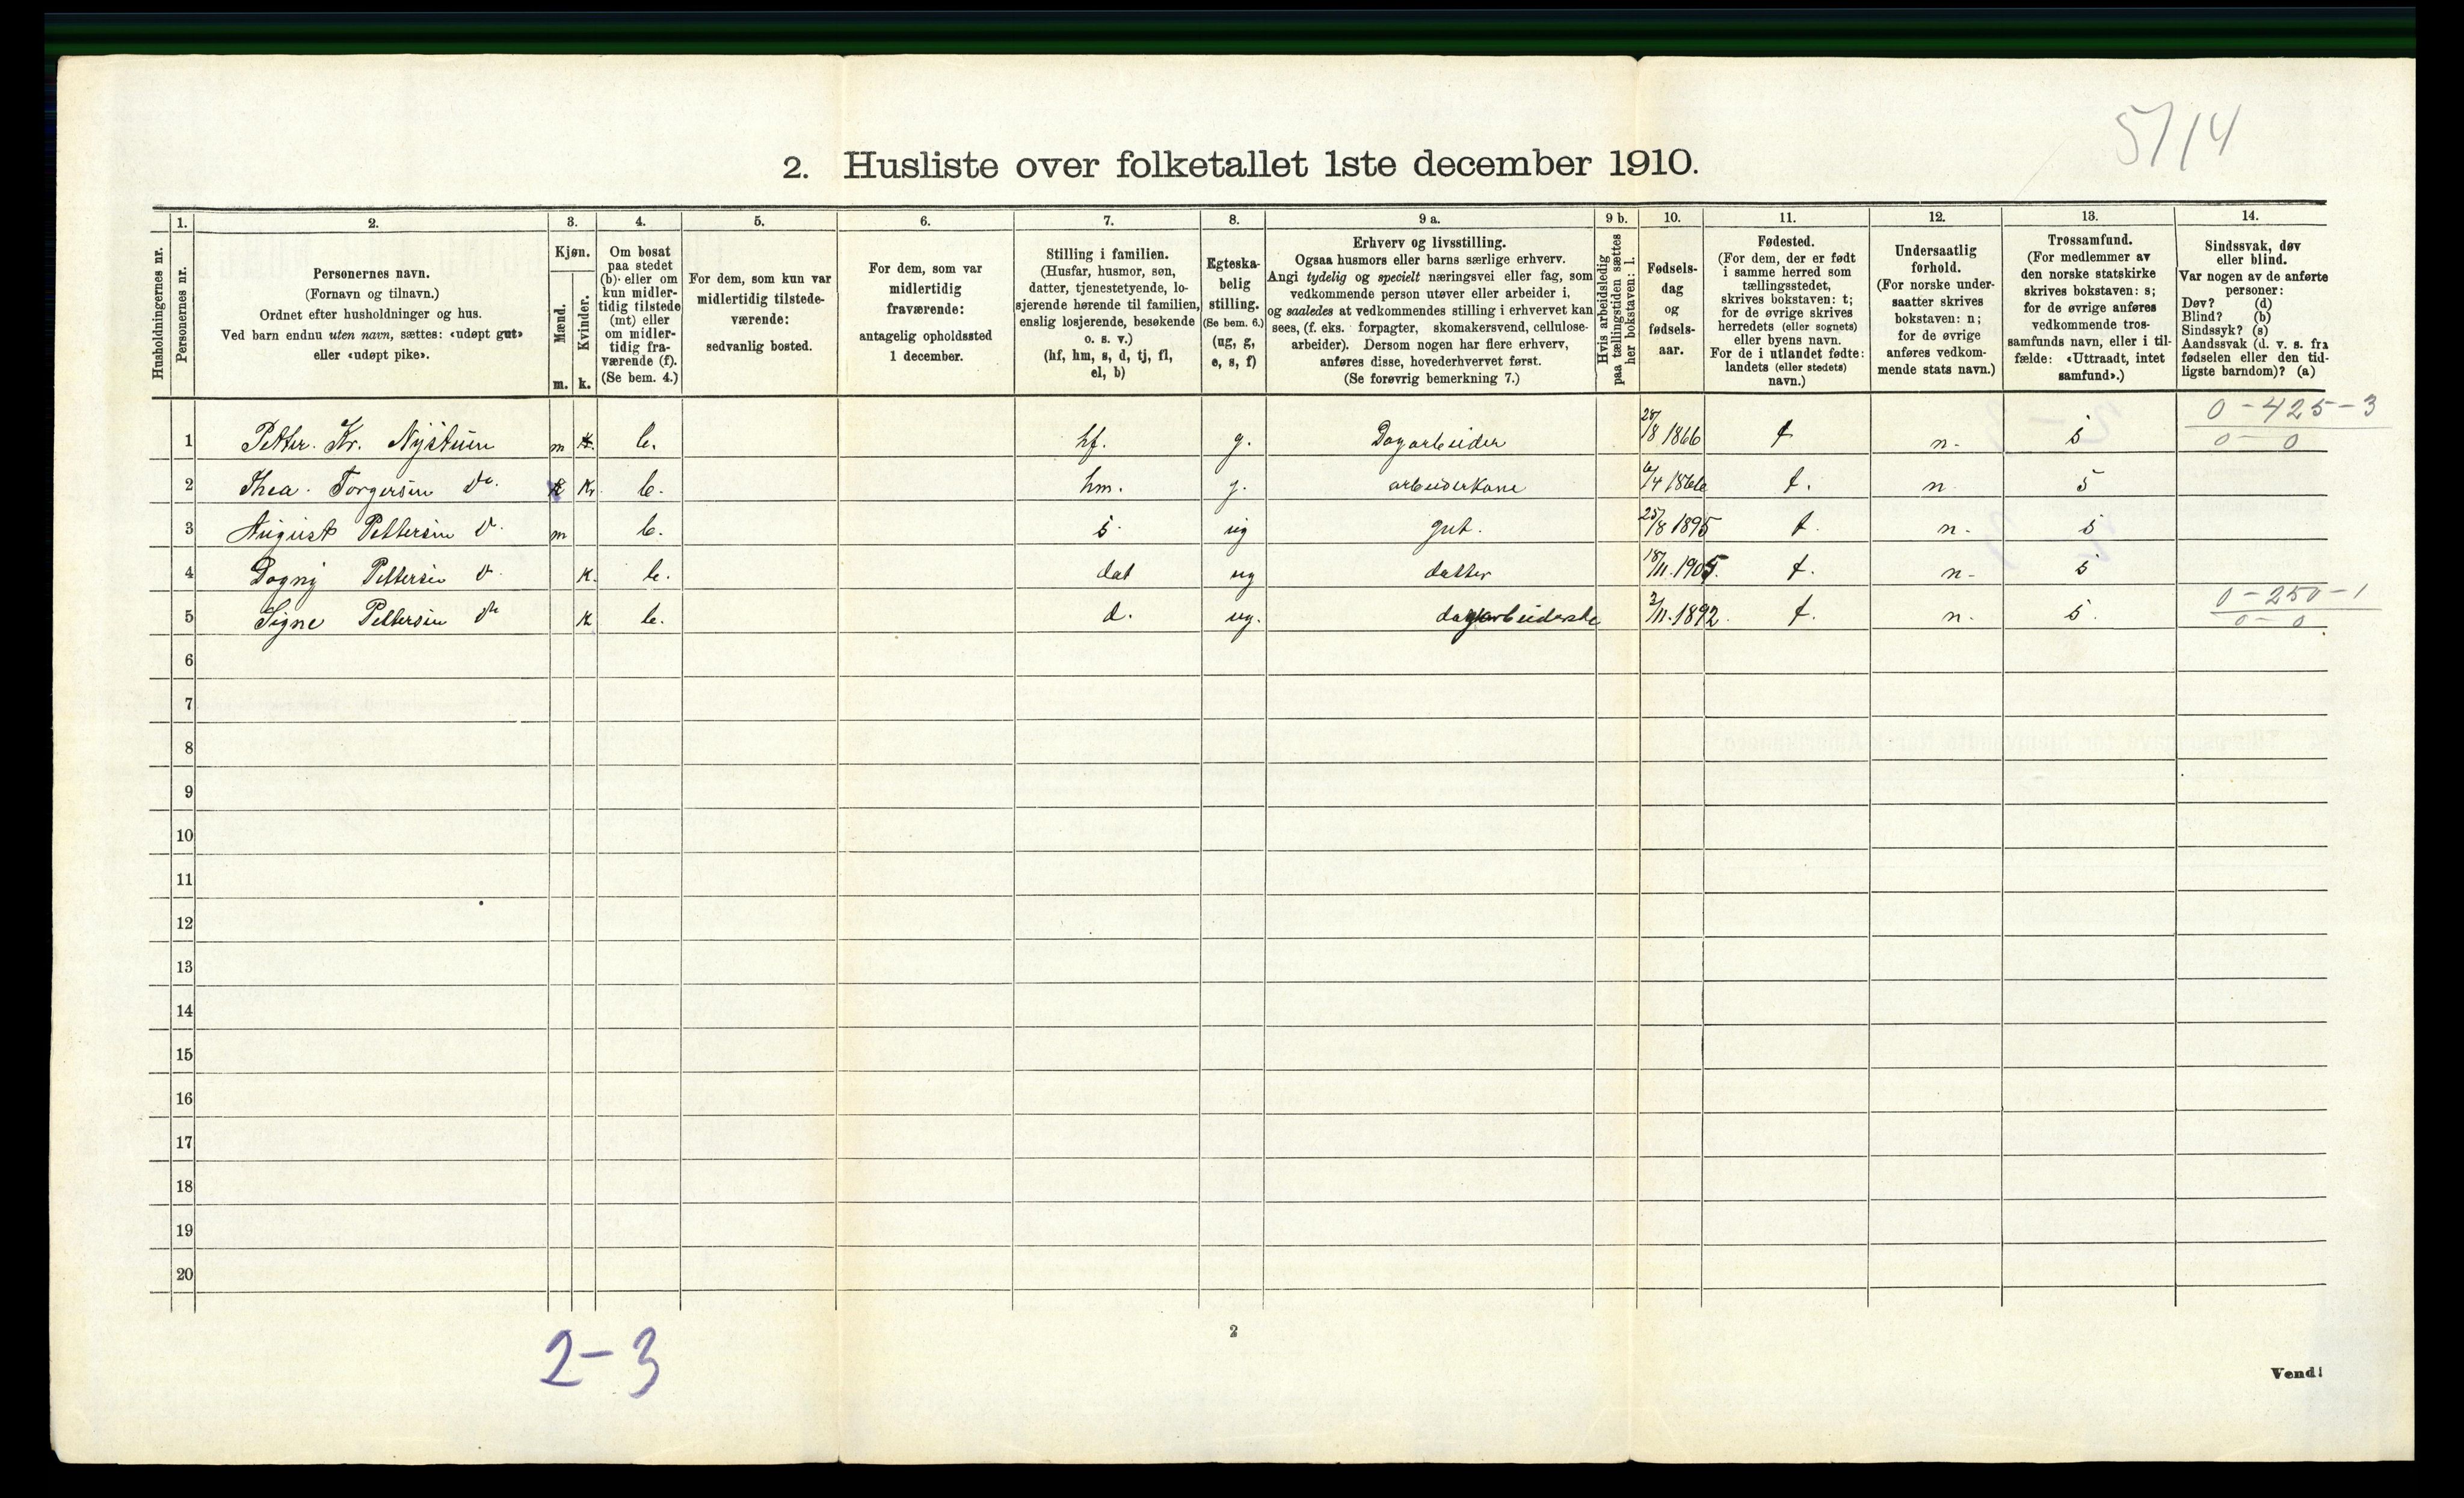 5/14
2. Husliste over folketallet 1ste december 1910.
Husholdningernes nr.
1.
Personernes nr.
2.
Personernes navn.
(Fornavn og tilnavn.)
Ordnet efter husholdninger og hus.
Ved barn endnu uten navn, sættes: «udøpt gut»
eller «udøpt pike».
3.
Kjøn.
Mænd.
Kvinder.
m. k.
4.
Om bosat
paa stedet
(b) eller om
kun midler-
tidig tilstede
(mt) eller
om midler-
tidig fra-
værende (f).
(Se bem. 4.)
5.
For dem, som kun var
midlertidig tilstede-
værende:
sedvanlig bosted.
6.
For dem, som var
midlertidig
fraværende:
antagelig opholdssted
1 december.
7.
Stilling i familien.
(Husfar, husmor, søn,
datter, tjenestetyende, lo-
sjerende hørende til familien,
enslig losjerende, besøkende
o. s. v.)
(hf, hm, s, d, tj, fl,
el, b)
8.
Egteska-
belig
stilling.
(Se bem. 6.)
(ug, g,
e, s, f)
9 a.
Erhverv og livsstilling.
Ogsaa husmors eller barns særlige erhverv.
Angi tydelig og specielt næringsvei eller fag, som
vedkommende person utøver eller arbeider i,
og saaledes at vedkommendes stilling i erhvervet kan
sees, (f. eks. forpagter, skomakersvend, cellulose-
arbeider). Dersom nogen har flere erhverv,
anføres disse, hovederhvervet først.
(Se forøvrig bemerkning 7.)
9 b.
Hvis arbeidsledig
paa tællingstiden sættes
her bokstaven: l.
10.
Fødsels-
dag
og
fødsels-
aar.
11.
Fødested.
(For dem, der er født
i samme herred som
tællingsstedet,
skrives bokstaven: t;
for de øvrige skrives
herredets (eller sognets)
eller byens navn.
For de i utlandet fødte:
landets (eller stedets)
navn.)
12.
Undersaatlig
forhold.
(For norske under-
saatter skrives
bokstaven: n;
for de øvrige
anføres vedkom-
mende stats navn.)
13.
Trossamfund.
(For medlemmer av
den norske statskirke
skrives bokstaven: s;
for de øvrige anføres
vedkommende tros-
samfunds navn, eller i til-
fælde: «Uttraadt, intet
samfund».)
14.
Sindssvak, døv
eller blind.
Var nogen av de anførte
personer:
Døv? (d)
Blind? (b)
Sindssyk? (s)
Aandssvak (d. v. s. fra
fødselen eller den tid-
ligste barndom)? (a)
0-425-3
1 Petter. Kr. Nystuen m b. hf. g. Dagarbeider 28/8 1866 t n. s 0-0
2 Thea. Torgersen Do. K. b. hm. g. arbeiderkone 6/4 1866 t. n s
3 August Pettersen D. m b. s. ug gut. 25/8 1895 t. n. s
4 Dagny Pettersen D. K. b. dat ug datter 18/11. 1905. t. n. s
0-250-1
5 Signe Pettersen Do K b. d. ug. dagarbeiderske 3/11. 1892. t. n. s. 0-0
6
7
8
9
10
11
12
13
14
15
16
17
18
19
20
2-3
2
Vend!